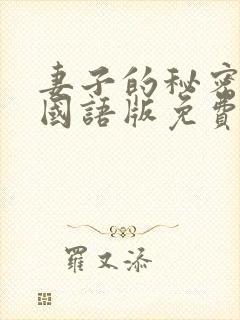 妻子的秘密
國語版免費
羅又添